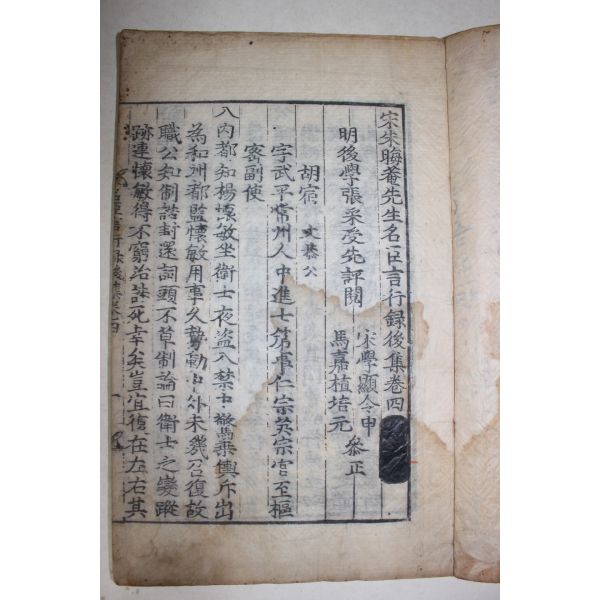 宋朱晦菴先生名臣言行録後集卷四
明後學張采受先評閱
宋學顯令申
馬嘉植培元
叅正
胡宿 文恭公
字武平常州人中進士第事仁宗英宗官至樞
密副使
入內都知楊懷敏坐衛士夜盜入禁中驚乘輿斥出
為和州都監懷敏用事久勢動中外未幾召復故
職公知制誥封還詞頭不草制論曰衛士之變蹤
跡連懷敏得不窮治誅死幸矣豈宜復在左右其
名臣言行録後集卷四
一